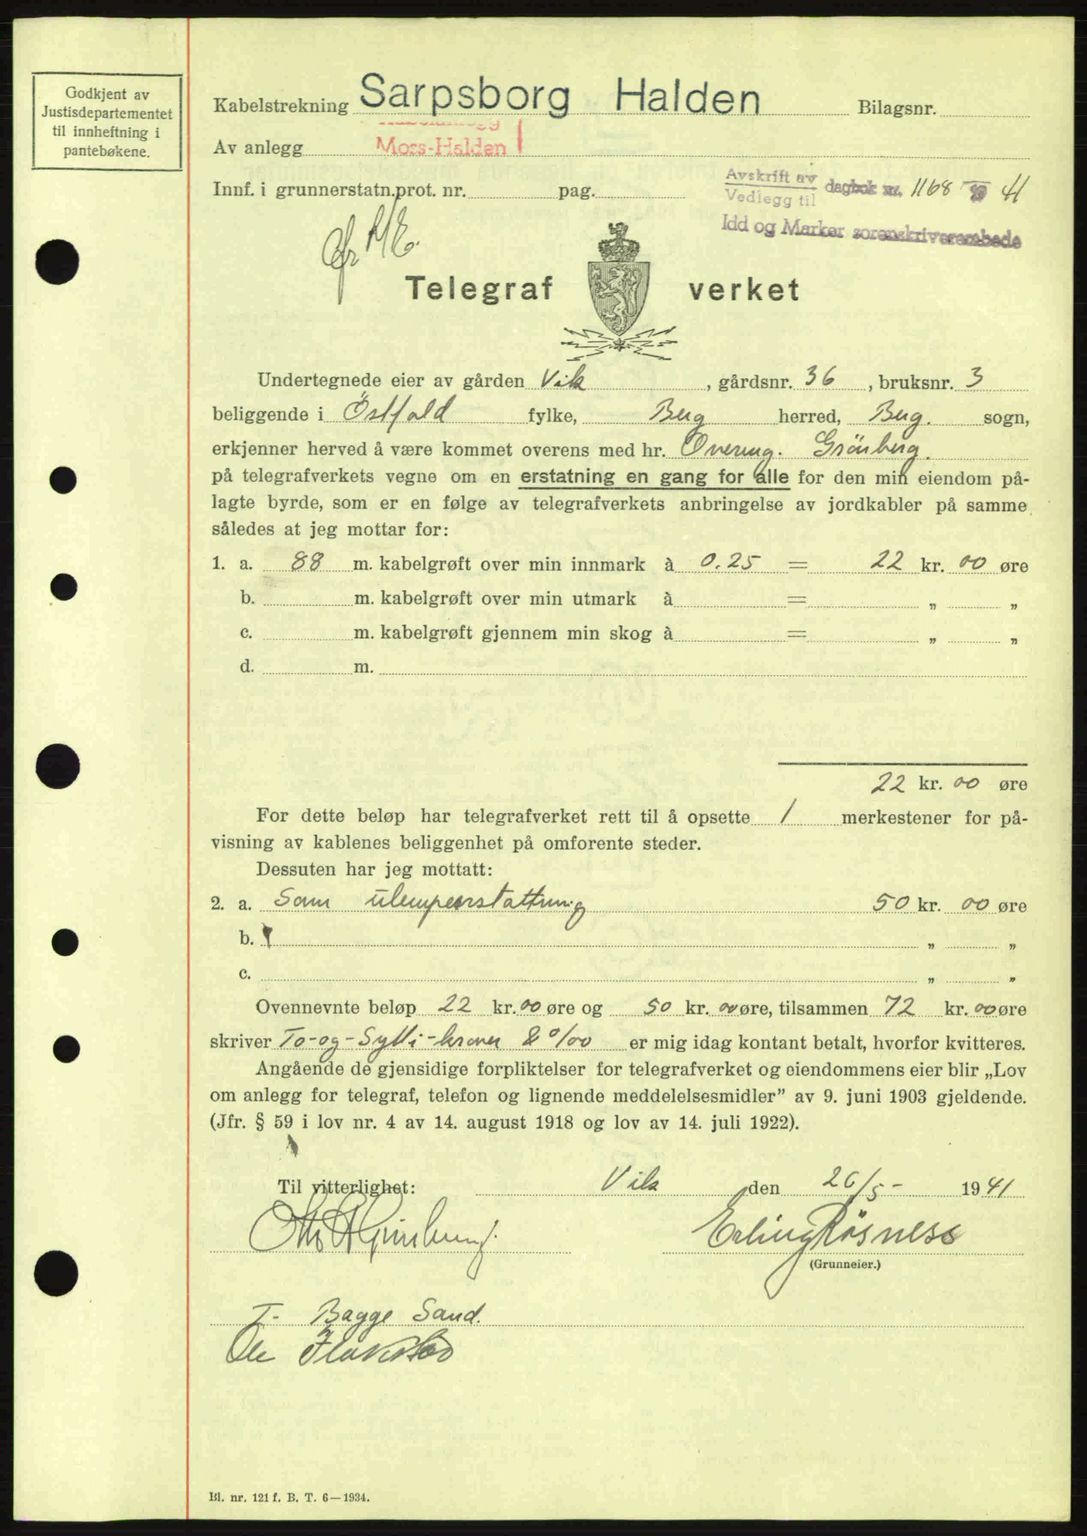 Godkjent av
Justisdepartementet
til innheftning i
pantebøkene.
Kabelstrekning Sarpsborg Halden Bilagsnr.
Av anlegg Moss-Halden
Innf. i grunnerstatn.prot. nr. pag.
Avskrift av
Vedlegg til dagbok nr. 1168 19 41
Idd og Marker sorenskriverembede
Telegraf verket
Undertegnede eier av gården Vik, gårdsnr. 36, bruksnr. 3
beliggende i Østfold fylke, Berg herred, Berg. sogn,
erkjenner herved å være kommet overens med hr. Overing. Grönberg.
på telegrafverkets vegne om en erstatning en gang for alle for den min eiendom på-
lagte byrde, som er en følge av telegrafverkets anbringelse av jordkabler på samme
således at jeg mottar for:
1. a. 88 m. kabelgrøft over min innmark à 0.25 = 22 kr. 00 øre
b. m. kabelgrøft over min utmark à = „ „
c. m. kabelgrøft gjennem min skog à = „ „
d. m.
22 kr. 00 øre
For dette beløp har telegrafverket rett til å opsette 1 merkestener for på-
visning av kablenes beliggenhet på omforente steder.
Dessuten har jeg mottatt:
2. a. Som ulempeerstattning 50 kr. 00 øre
b. „ „
c. „ „
Ovennevnte beløp 22 kr. 00 øre og 50 kr. 00 øre, tilsammen 72 kr. 00 øre
skriver To-og-Sytti-kroner & 0/00 er mig idag kontant betalt, hvorfor kvitteres.
Angående de gjensidige forpliktelser for telegrafverket og eiendommens eier blir „Lov
om anlegg for telegraf, telefon og lignende meddelelsesmidler” av 9. juni 1903 gjeldende.
(Jfr. § 59 i lov nr. 4 av 14. august 1918 og lov av 14. juli 1922).
Til vitterlighet: Vik den 26/5- 1941
Erling Røsness
(Grunneier.)
T. Bagge Sand.
Ole
Bl. nr. 121 f. B. T. 6—1934.